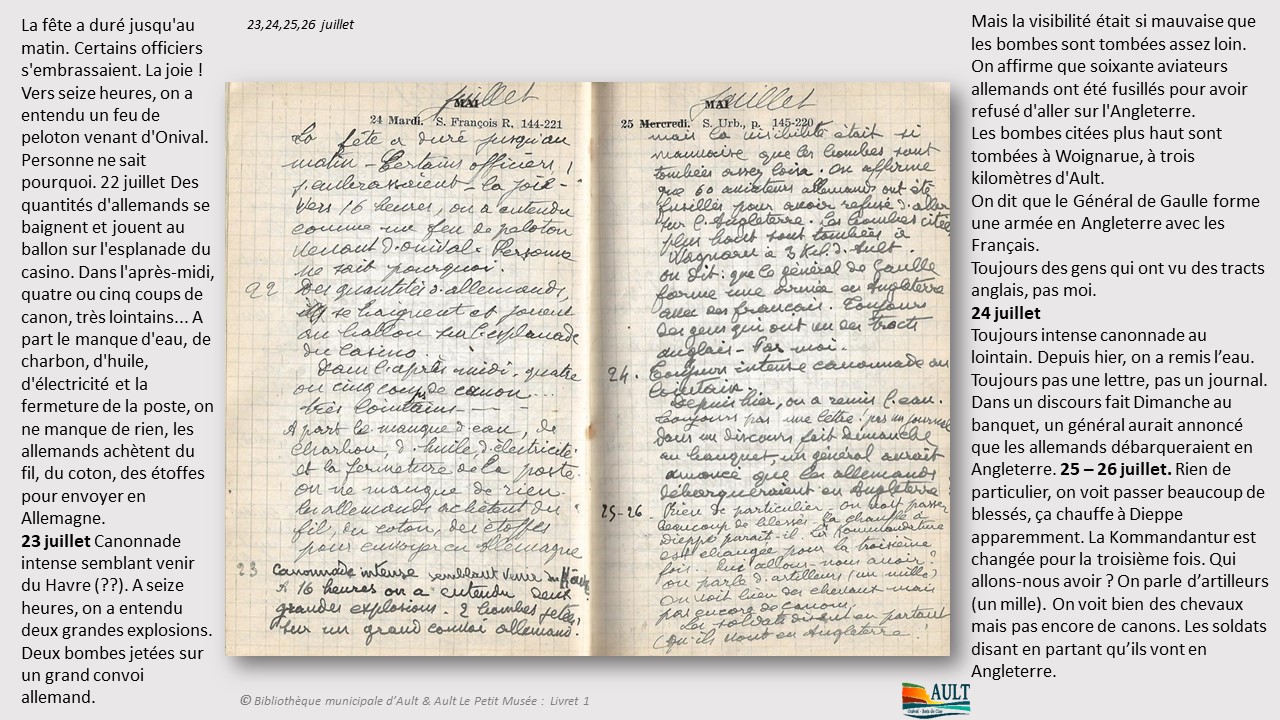 La fête a duré jusqu'au
matin. Certains officiers
s'embrassaient. La joie !
Vers seize heures, on a
entendu un feu de
peloton venant d'Onival.
Personne ne sait
pourquoi. 22 juillet Des
quantités d'allemands se
baignent et jouent au
ballon sur l'esplanade du
casino. Dans l'après-midi,
quatre ou cinq coups de
canon, très lointains... A
part le manque d'eau, de
charbon, d'huile,
d'électricité et la
fermeture de la poste, on
ne manque de rien, les
allemands achètent du
fil, du coton, des étoffes
pour envoyer en
Allemagne.
23 juillet Canonnade
intense semblant venir
du Havre (??). A seize
heures, on a entendu
deux grandes explosions.
Deux bombes jetées sur
un grand convoi
allemand.
23,24,25,26 juillet
juillet
MAI
24 Mardi. S. François R. 144-221
La fête a duré jusqu'au
matin - Certains officiers
s'embrassaient - la joie -
Vers 16 heures, on a entendu
comme un feu de peloton
venant d'Onival. Personne
ne sait pourquoi.
22 Des quantités d'allemands,
se baignent et jouent
au ballon sur l'esplanade
du Casino...
Dans l'après midi. quatre
ou cinq coups de canon...
très lointains
A part le manque d'eau, de
charbon, d'huile d'électricité
et la fermeture de la poste.
on ne manque de rien.
les allemands achètent du
fil, du coton, des étoffes
pour envoyer en Allemagne
23 Canonnade intense semblant venir du Havre
A 16 heures on a entendu deux
grandes explosions. 2 bombes jetées
sur un grand convoi allemand.
juillet
MAI
25 Mercredi. S. Urb., p. 145-220
mais la visibilité était si
mauvaise que les bombes sont
tombées assez loin. On affirme
que 60 aviateurs allemands ont été
fusillés pour avoir refusé d'aller
sur l'Angleterre. Les bombes citées
plus haut sont tombées à
à 3 Kil. d'Ault.
on dit: que le général de Gaulle
forme une armée en Angleterre
avec des français. Toujours
des gens qui ont vu des tracts
anglais - Pas moi.
24. Toujours intense canonnade au
lointain.
Depuis hier, on a remis l'eau.
Toujours pas une lettre! pas un journal
Dans un discours fait dimanche
au banquet, un général aurait
annoncé que les allemands
débarqueraient en Angleterre
25-26 Rien de particulier - on voit passer
beaucoup de blessés - ça chauffe à
Dieppe parait-il. La Kommandantur
est changée pour la troisième
fois. Qui allons-nous avoir?
on parle d'artilleurs (un mille)
on voit bien des chevaux mais
pas encore de canons,
Les soldats disent en partant
qu'ils vont en Angleterre!
Mais la visibilité était si mauvaise que
les bombes sont tombées assez loin.
On affirme que soixante aviateurs
allemands ont été fusillés pour avoir
refusé d'aller sur l'Angleterre.
Les bombes citées plus haut sont
tombées à Woignarue, à trois
kilomètres d'Ault.
On dit que le Général de Gaulle forme
une armée en Angleterre avec les
Français.
Toujours des gens qui ont vu des tracts
anglais, pas moi.
24 juillet
Toujours intense canonnade au
lointain. Depuis hier, on a remis l'eau.
Toujours pas une lettre, pas un journal.
Dans un discours fait Dimanche au
banquet, un général aurait annoncé
que les allemands débarqueraient en
Angleterre. 25 – 26 juillet. Rien de
particulier, on voit passer beaucoup de
blessés, ça chauffe à Dieppe
apparemment. La Kommandantur est
changée pour la troisième fois. Qui
allons-nous avoir ? On parle d'artilleurs
(un mille). On voit bien des chevaux
mais pas encore de canons. Les soldats
disant en partant qu'ils vont en
Angleterre.
© Bibliothèque municipale d'Ault & Ault Le Petit Musée : Livret 1
AULT